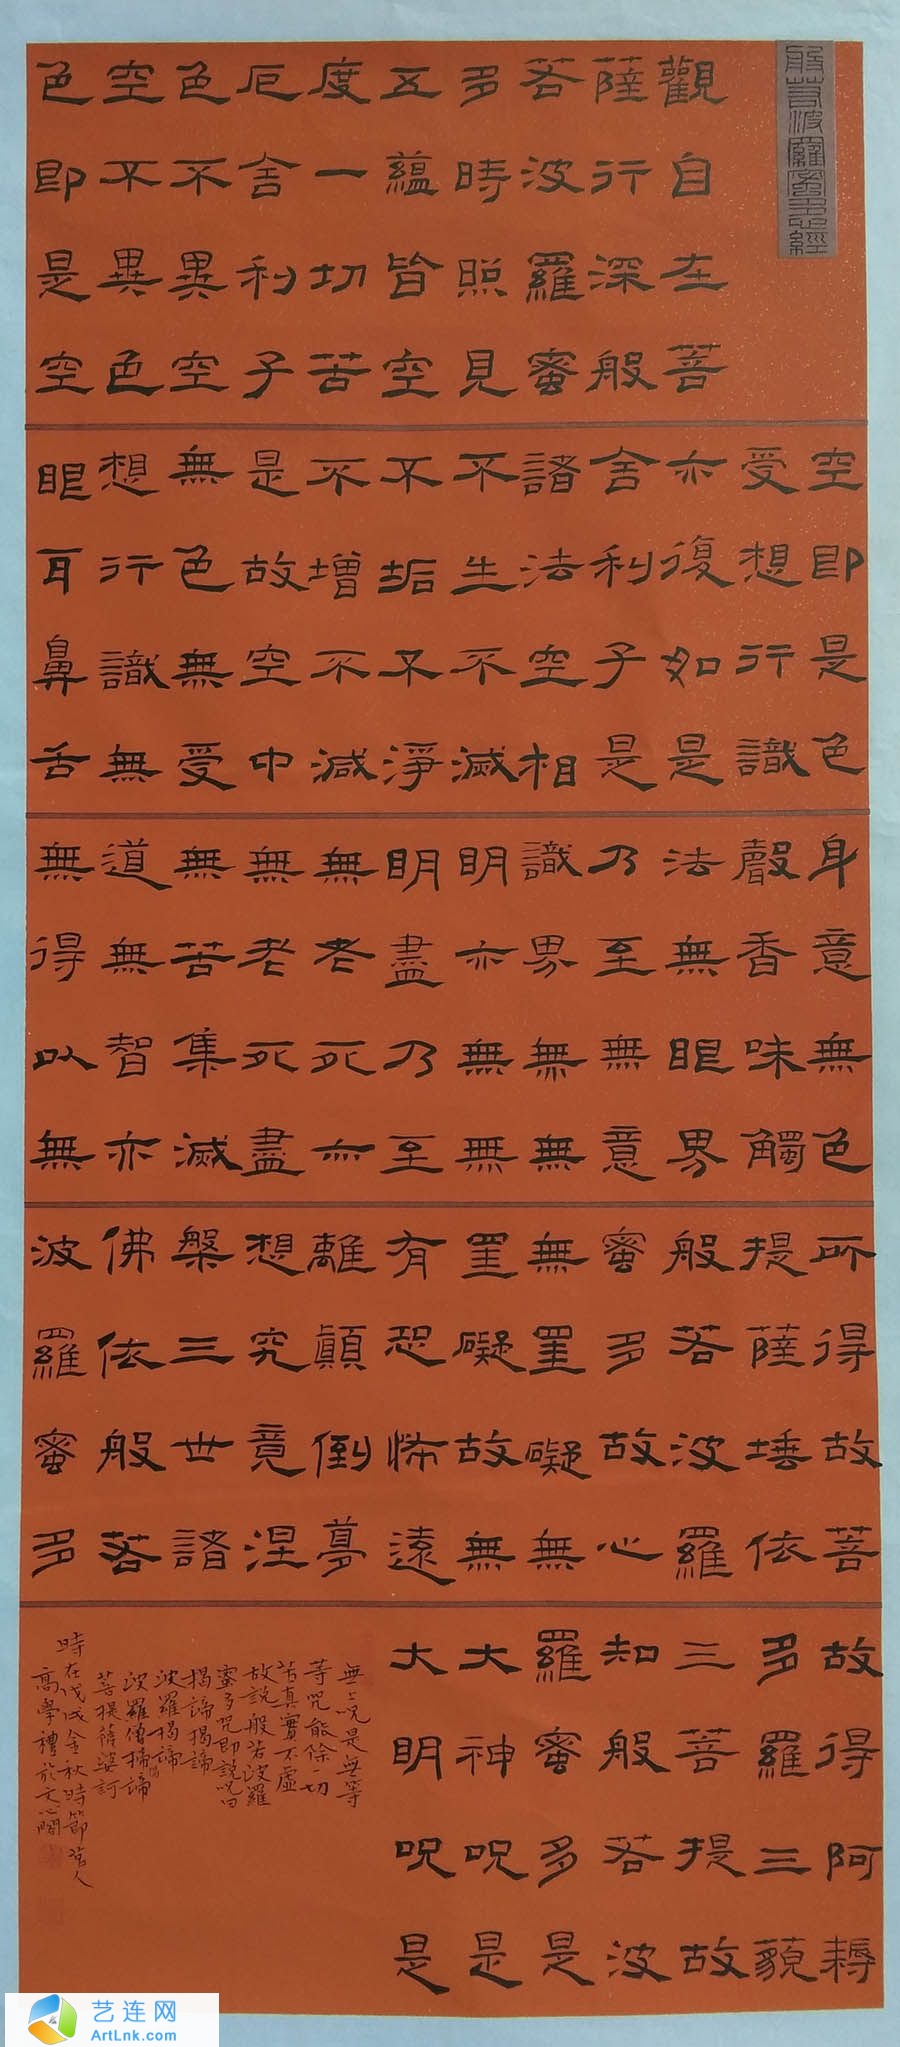 般若波羅蜜多心經
觀自在菩
薩行深般
若波羅蜜
多時照見
五蘊皆空
度一切苦
厄舍利子
色不異空
空不異色
色即是空
空即是色
受想行識
亦復如是
舍利子是
諸法空相
不生不滅
不垢不淨
不增不減
是故空中
無色無受
想行識無
眼耳鼻舌
身意無色
聲香味觸
法無眼界
乃至無意
識界無無
明亦無無
明盡乃至
無老死亦
無老死盡
無苦集滅
道無智亦
無得以無
所得故菩
提薩埵依
般若波羅
蜜多故心
無罣礙無
罣礙故無
有恐怖遠
離顛倒夢
想究竟涅
槃三世諸
佛依般若
波羅蜜多
故得阿耨
多羅三藐
三菩提故
知般若波
羅蜜多是
大神呪是
大明呪是
無上呪是無等
等呪能除一切
苦真實不虛
故說般若波羅
蜜多呪即說呪曰
揭諦揭諦
波羅揭諦
波羅僧揭諦
菩提薩婆訶
時在戊戌金秋時節人
高學禮於文心閣
艺连网
ArtLnk.com